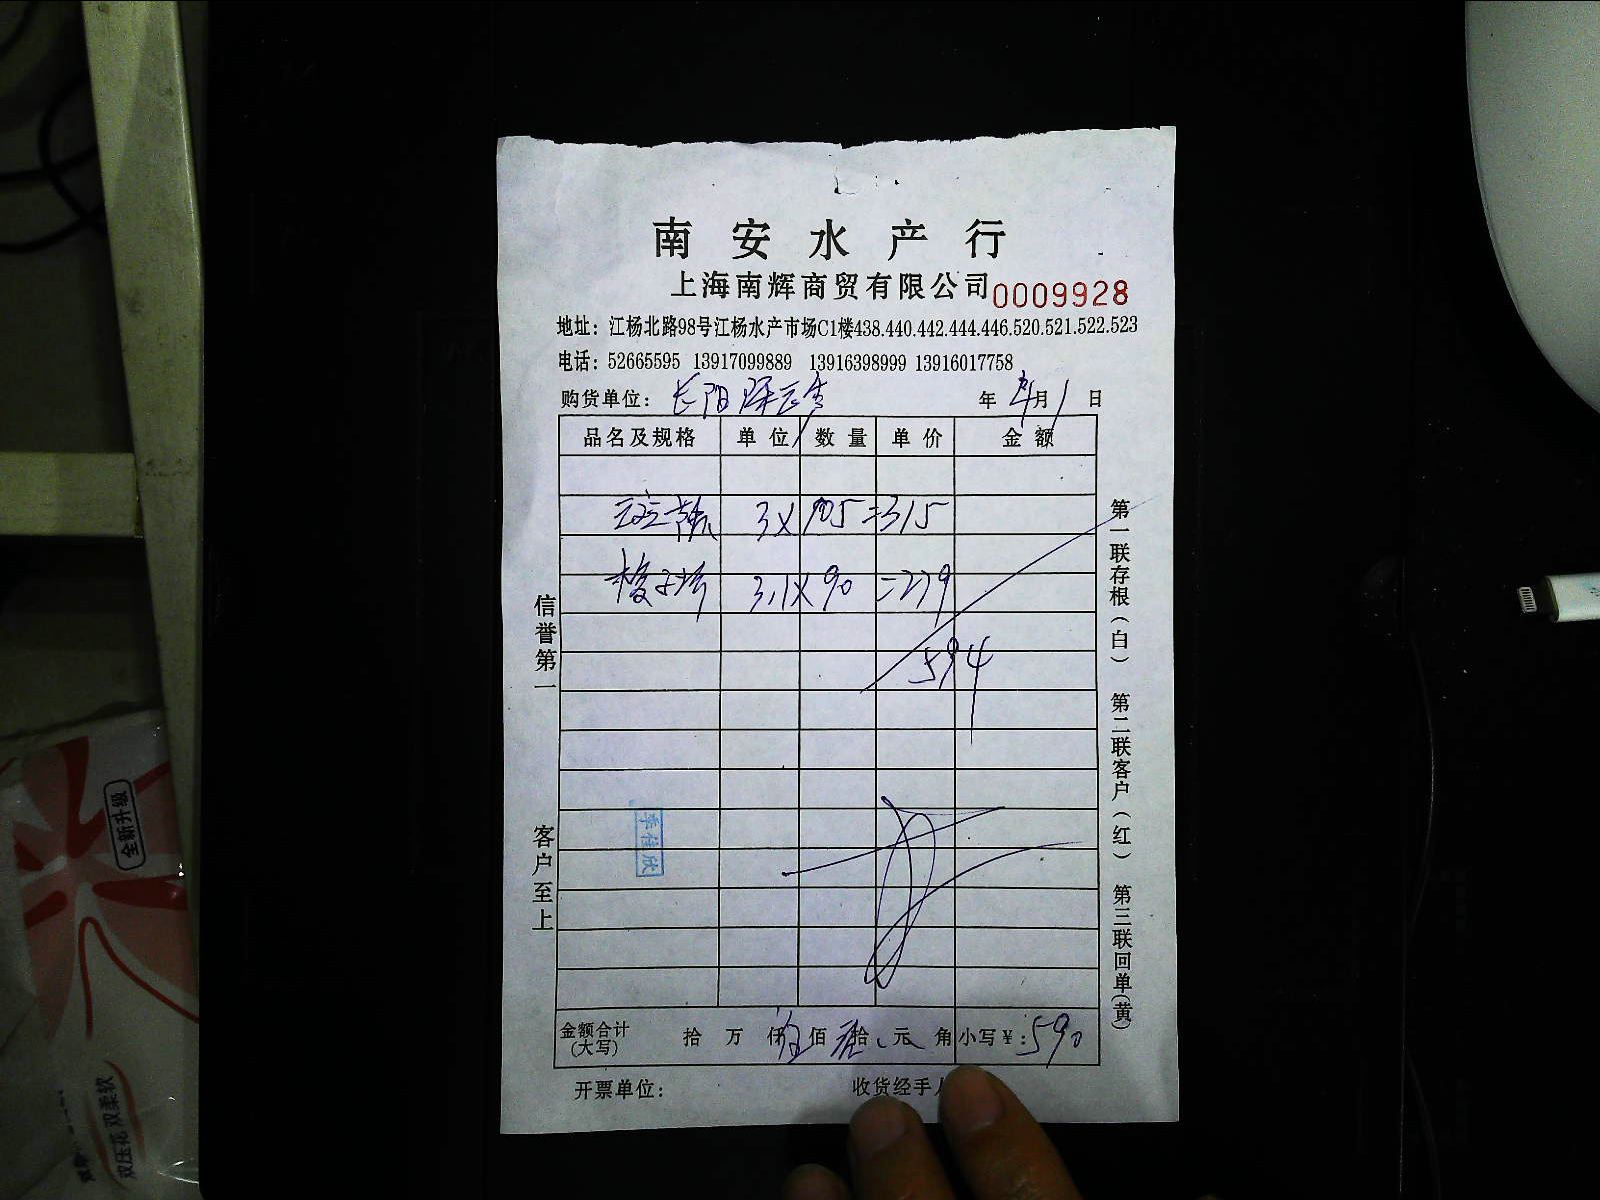 南安水产行
上海南辉商贸有限公司 0009928
地址：江杨北路98号江杨水产市场C1楼438.440.442.444.446.520.521.522.523
电话：52665595 13917099889 13916398999 13916017758
购货单位：长阳 年 月 1 日
品名及规格 单位 数量 单价 金额
3 X 105 =315
梭子 3.1 X 90 =279
594
信誉第一
客户至上
季佳欣
第一联存根（白） 第二联客户（红） 第三联回单（黄）
金额合计（大写） 拾 万 仟 伍 佰 拾 元 角 小写￥：590
开票单位： 收货经手
全新升级
双压花 双柔软